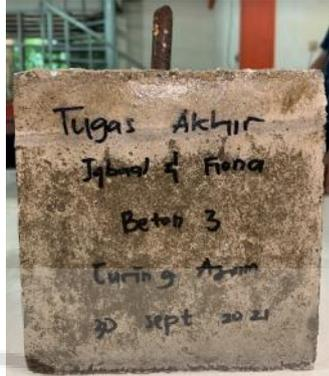 Tugas Akhir
Iqbaal & Fiona
Beton 3
Curing Azam
30 sept 2021